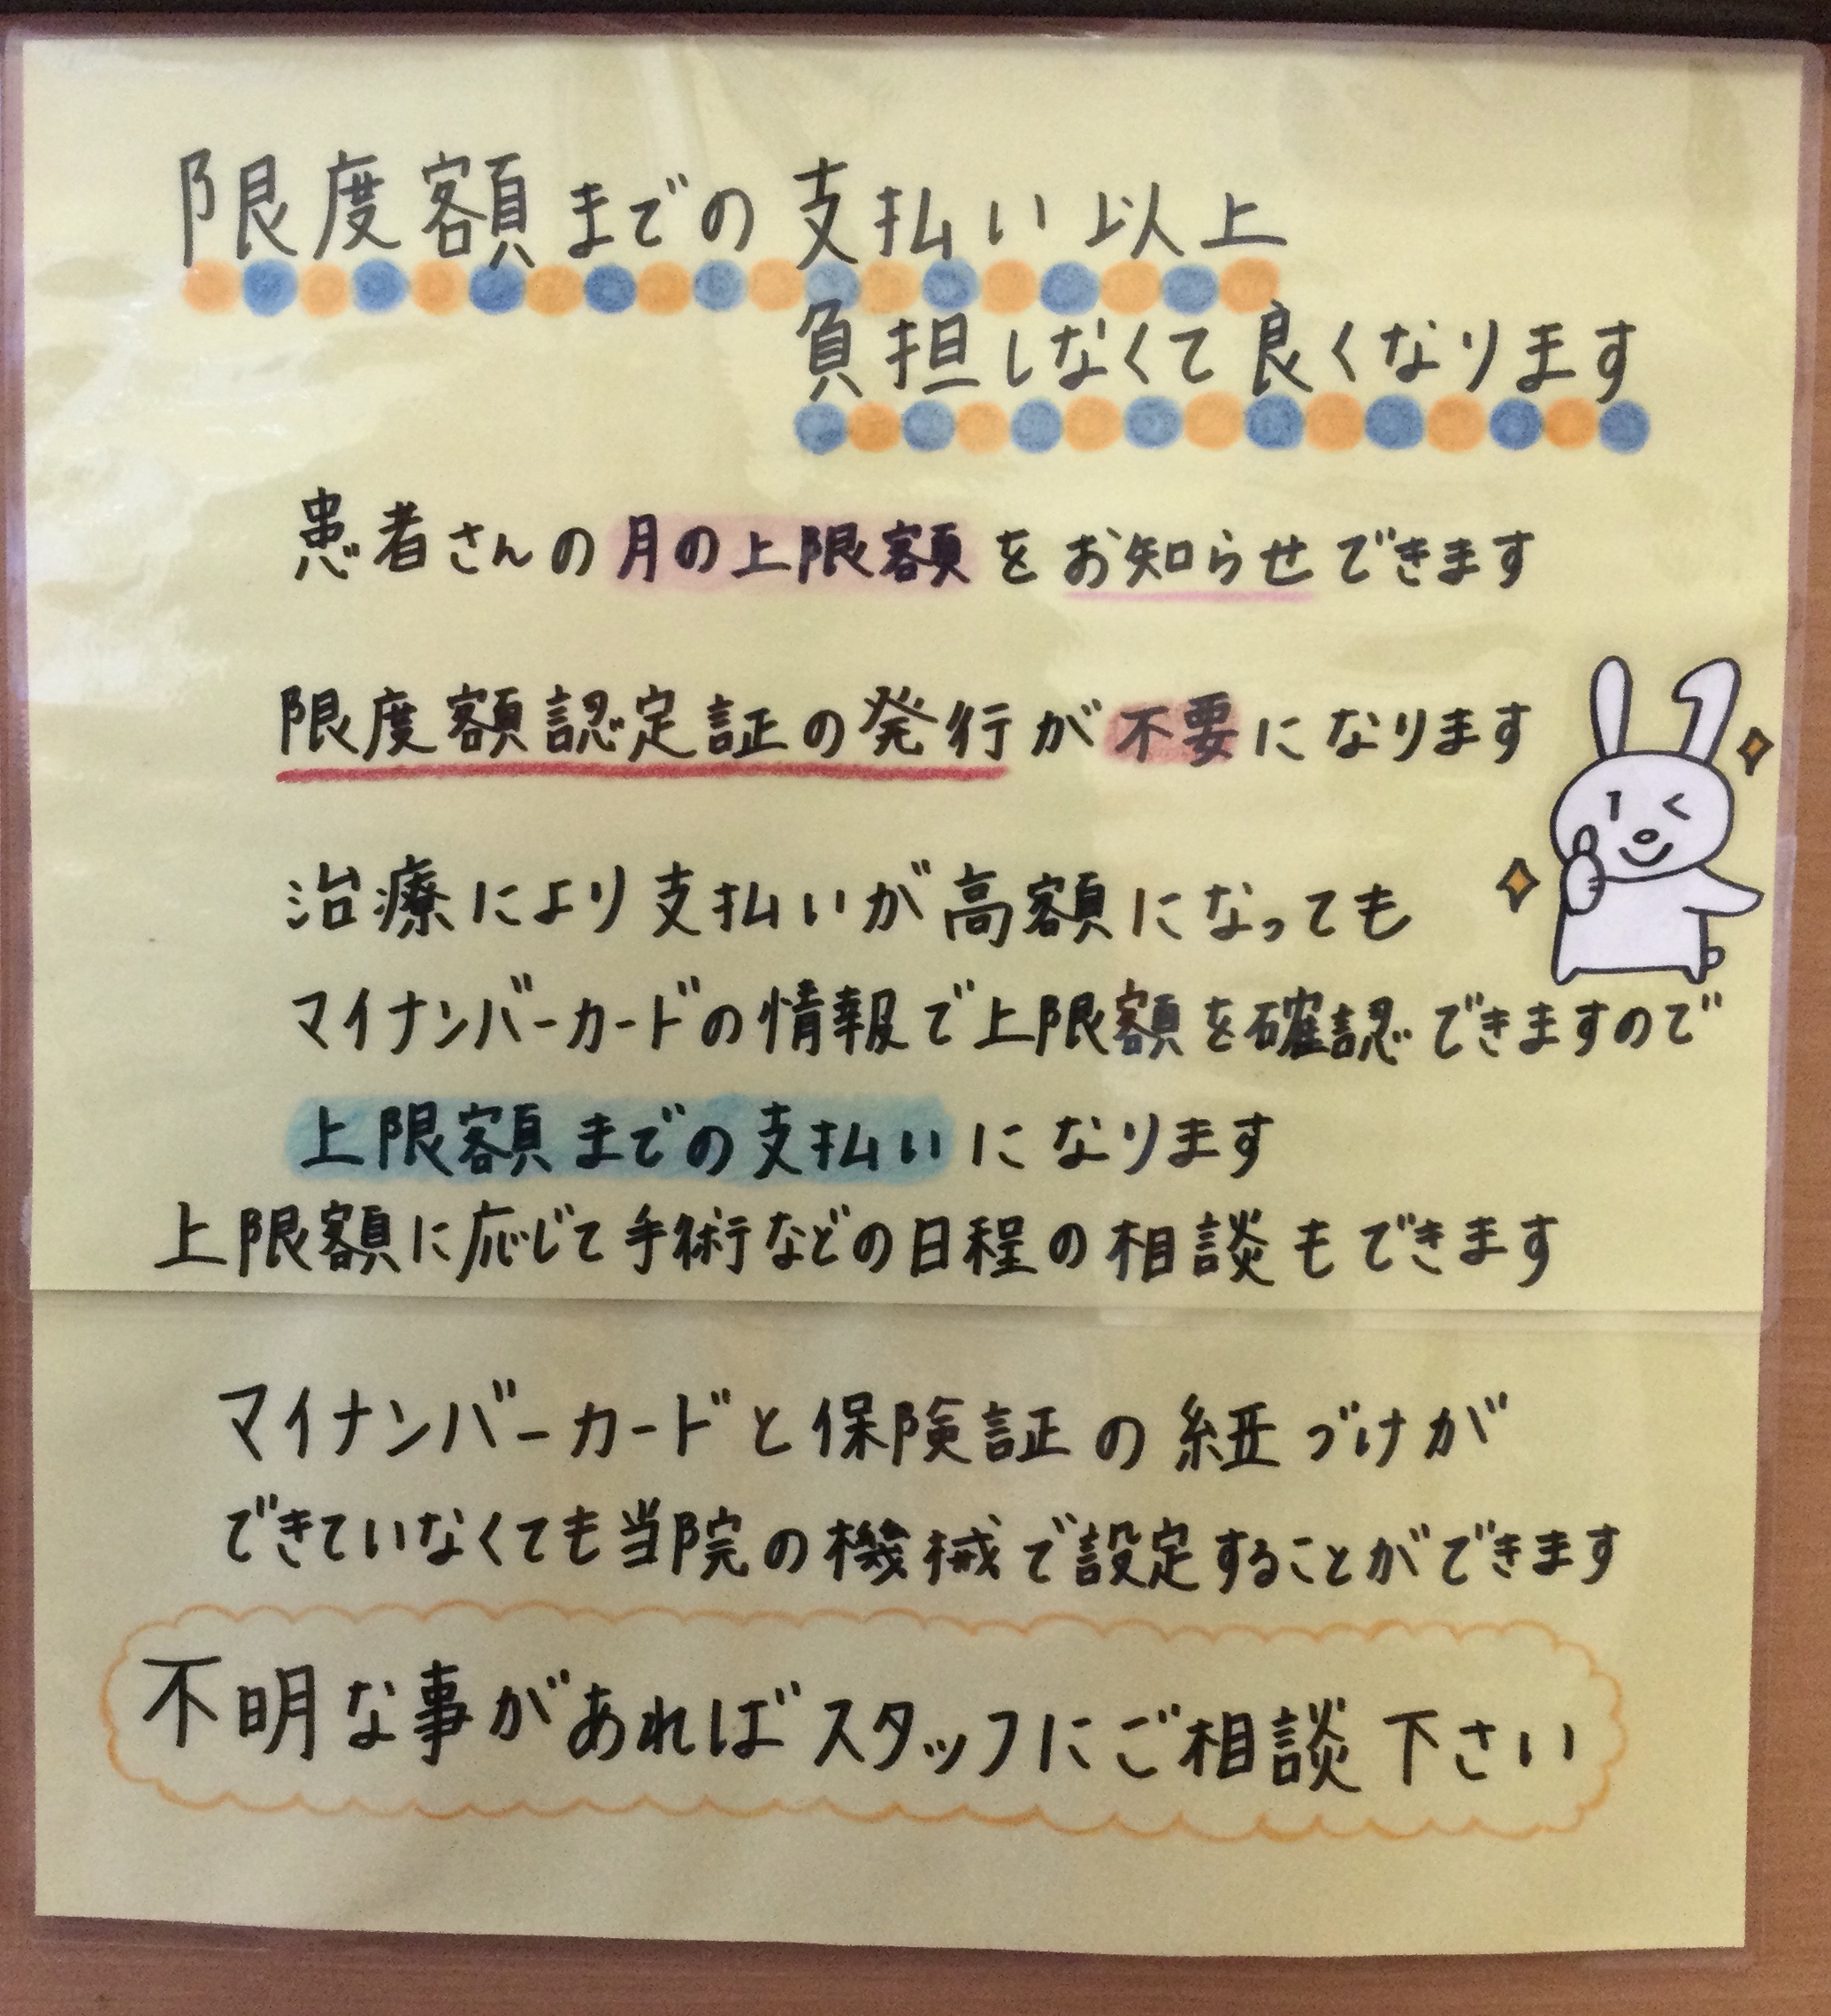 限度額までの支払い以上
負担しなくて良くなります
患者さんの月の上限額をお知らせできます
限度額認定証の発行が不要になります
治療により支払いが高額になっても
マイナンバーカードの情報で上限額を確認できますので
上限額までの支払いになります
上限額に応じて手術などの日程の相談もできます
マイナンバーカードと保険証の紐づけが
できていなくても当院の機械で設定することができます
不明な事があればスタッフにご相談下さい